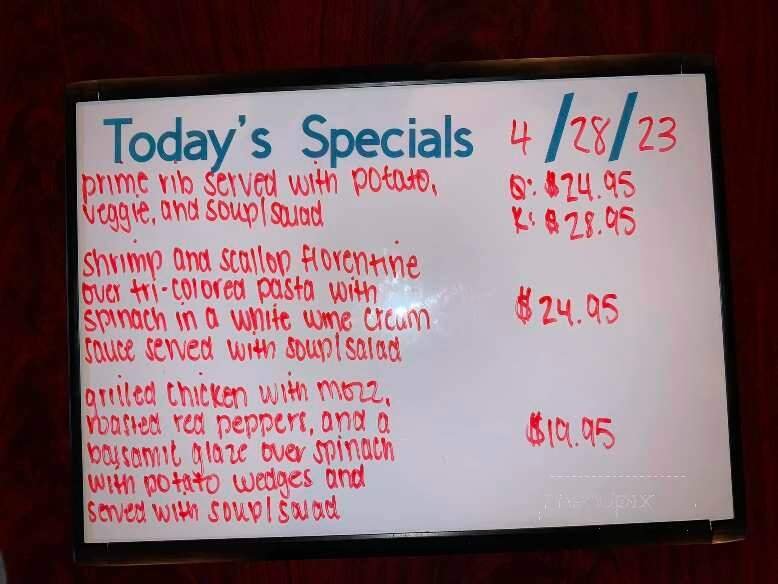 Today's Specials 4/28/23
prime rib served with potato, Q: $24.95
veggie, and soup/salad K: $28.95
shrimp and scallop florentine
over tri-colored pasta with
spinach in a white wine cream $24.95
sauce served with soup/salad
grilled chicken with mozz,
roasted red peppers, and a
balsamic glaze over spinach $19.95
with potato wedges and
served with soup/salad